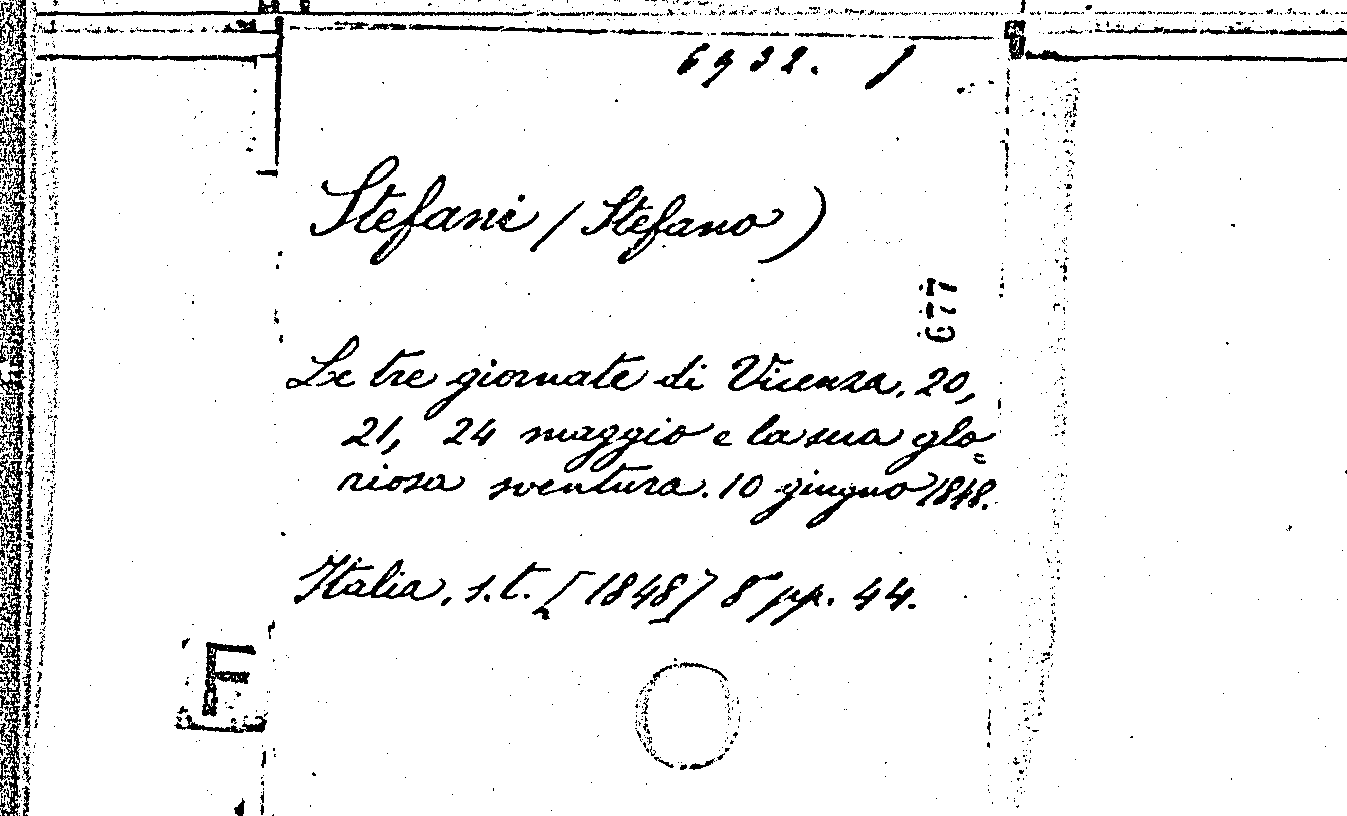 6932. J
Stefani (Stefano)
677
Le tre giornate di Vicenza, 20,
21, 24 maggio e la sua glo-
riosa sventura. 10 giugno 1848.
Italia, s.t. [1848] 8° pp. 44.
F